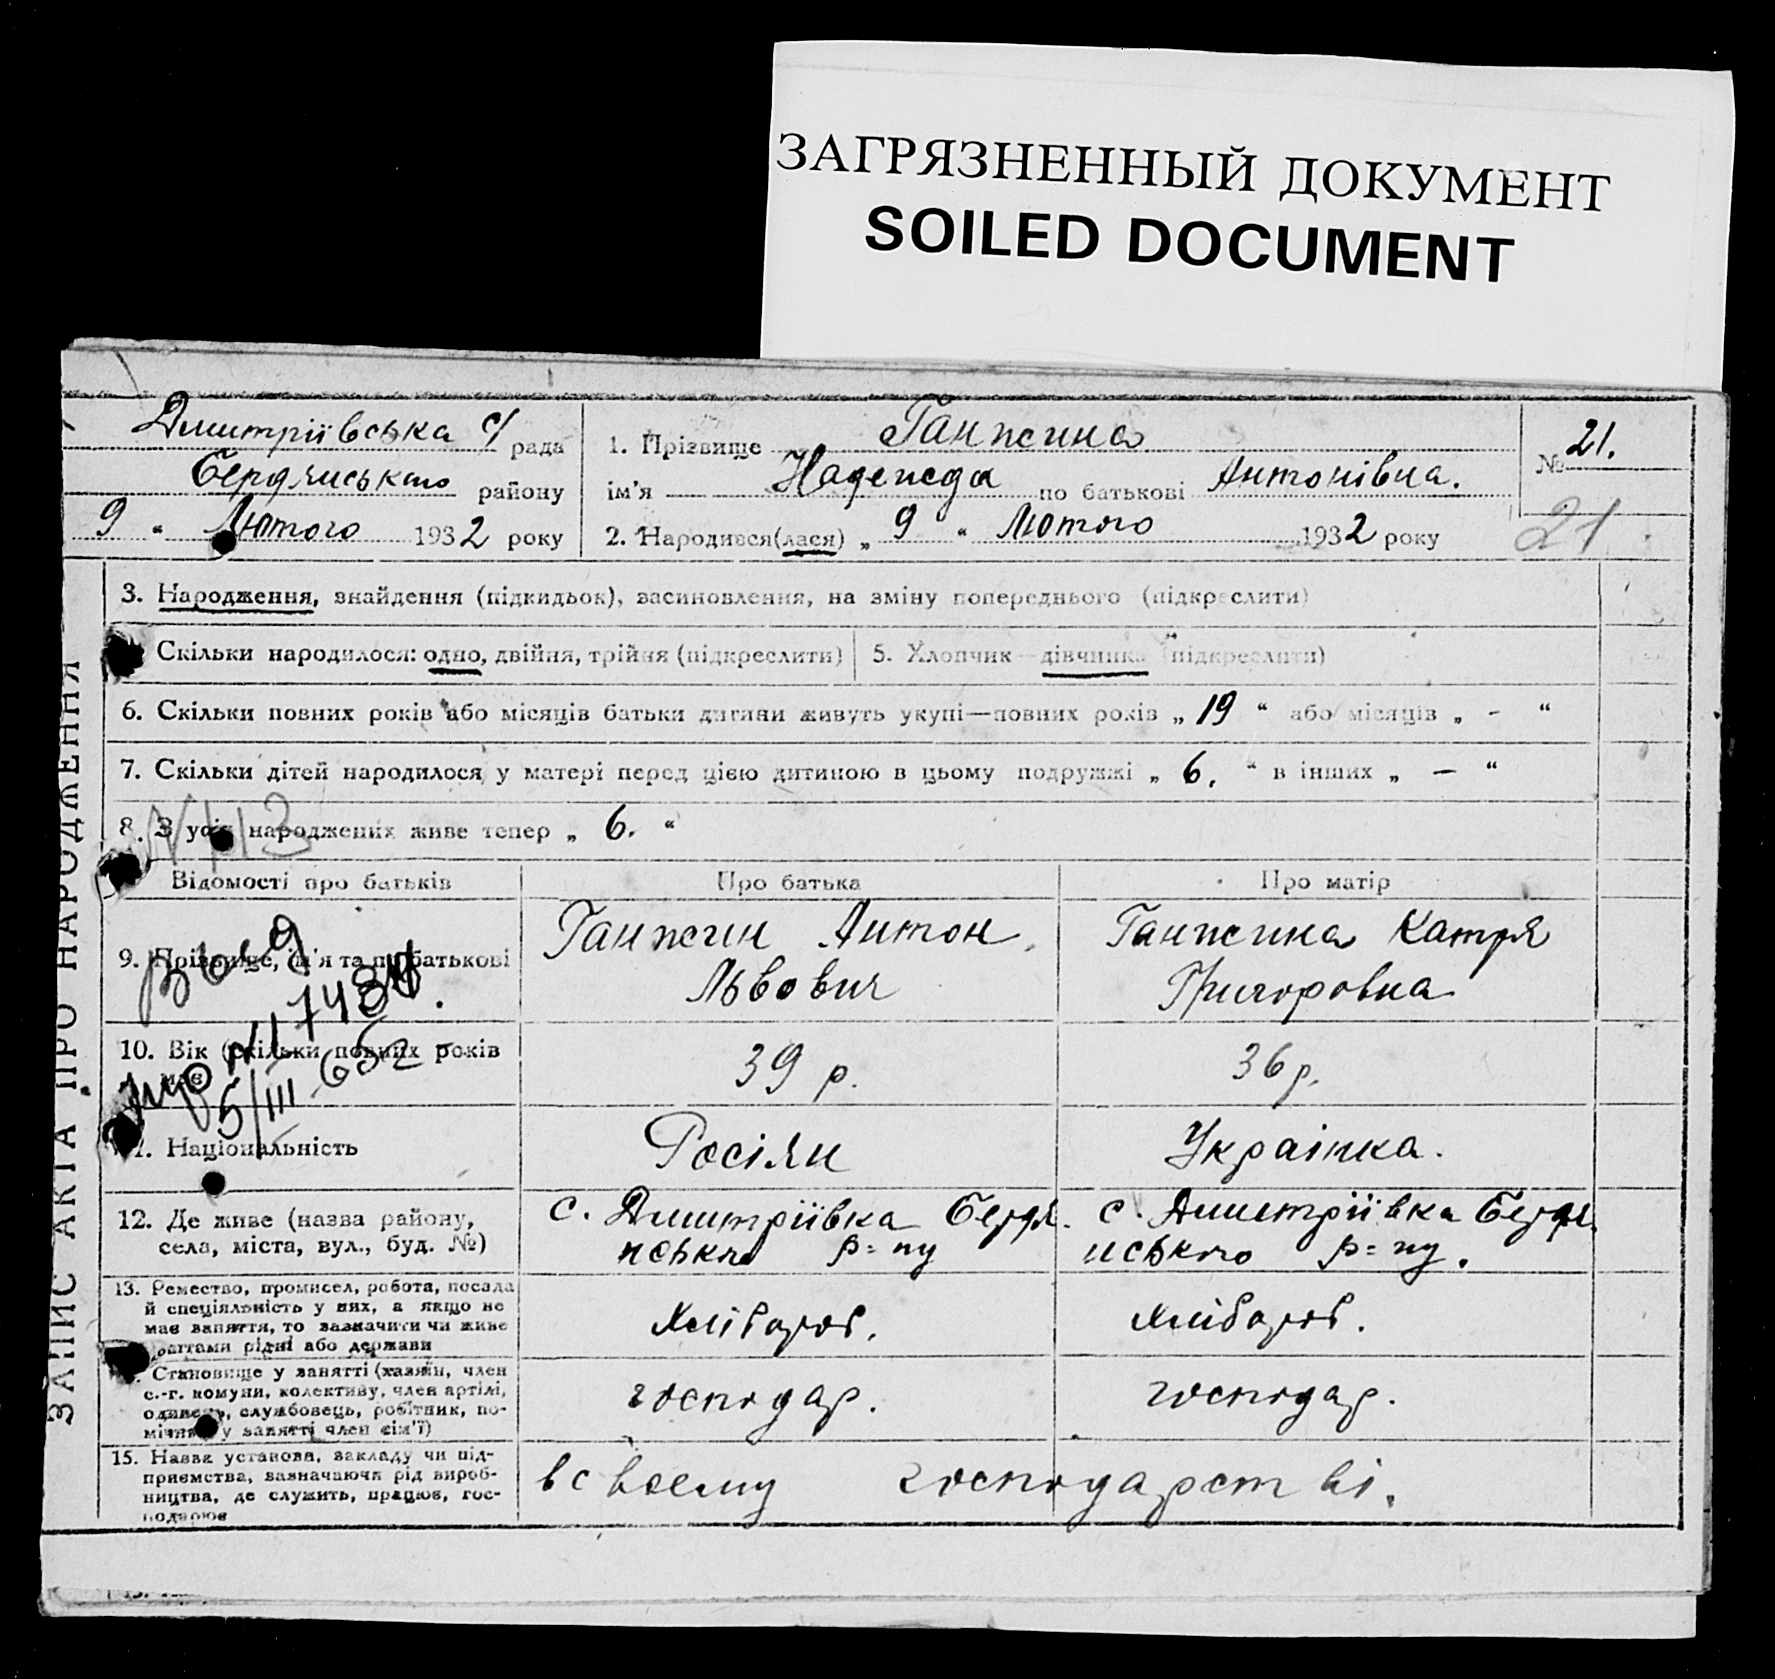 ЗАГРЯЗНЕННЫЙ ДОКУМЕНТ
SOILED DOCUMENT
Дмитріївська с/ рада
Бердянського району
9 " Лютого 1932 року
1. Прізвище Ганжина
ім'я Надежда по батькові Антонівна.
2. Народився(лася) „ 9 " Лютого 1932 року
№ 21.
21
ЗАПИС АКТА ПРО НАРОДЖЕННЯ
3. Народження, знайдення (підкидьок), засиновлення, на зміну попереднього (підкреслити)
Скільки народилося: одно, двійня, трійня (підкреслити)
5. Хлопчик—дівчинка (підкреслити)
6. Скільки повних років або місяців батьки дитини живуть укупі—повних років „ 19 " або місяців „ - "
7. Скільки дітей народилося у матері перед цією дитиною в цьому подружжі „ 6. " в інших „ — "
8. З усіх народжених живе тепер „ 6. "
Відомості про батьків
Про батька
Про матір
9. Прізвище, ім'я та по батькові
Ганжин Антон
Львович
Ганжина Катря
Григоровна
Выд
N 17480
5/III 652
10. Вік (скільки повних років
має
39 р.
36 р.
Національність
Росіян
Українка.
12. Де живе (назва району,
села, міста, вул., буд. №)
с. Дмитріївка Бердя
нського р=ну
с. Дмитріївка Бердя
нського р=ну.
13. Ремество, промисел, робота, посада
й спеціяльність у них, а якщо не
має заняття, то зазначити чи живе
коштами рідні або держави
Хлібороб.
Хлібороб.
Становище у занятті (хазяїн, член
с.-г. комуни, колективу, член артілі,
одинець, службовець, робітник, по-
мічник у занятті член сім'ї)
господар.
господар.
15. Назва установи, закладу чи під-
приємства, зазначаючи рід вироб-
ництва, де служить, працює, гос-
подарює
в своєму господарстві.